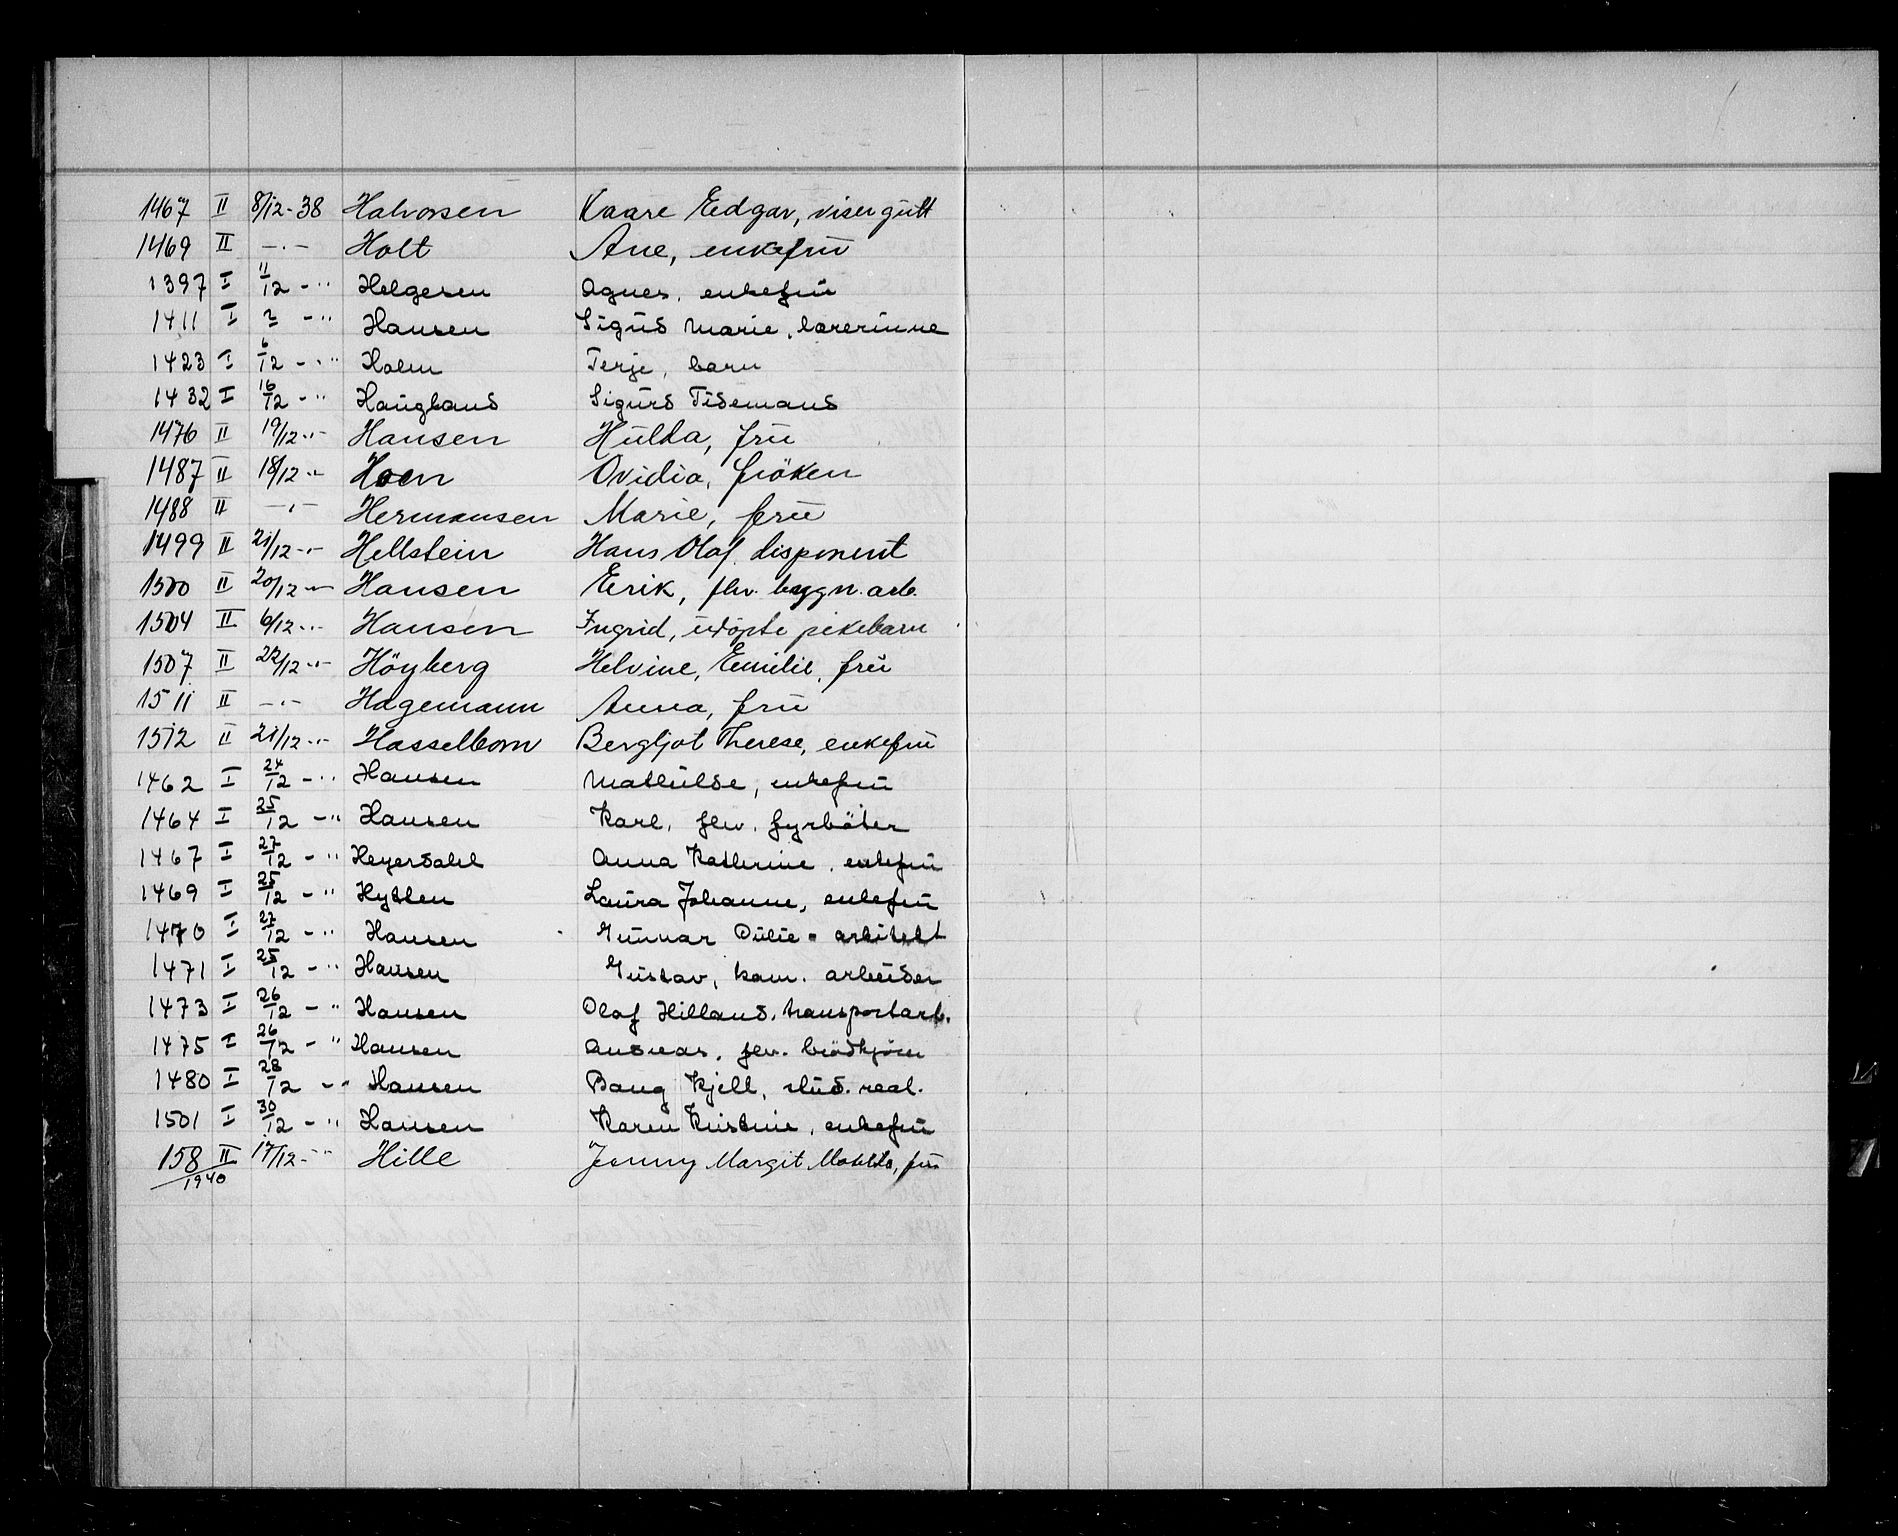 1467 II 8/12-38 Halvorsen Kaare Edgar, visergutt
1469 II -"- Holt Ane, enkefru
1397 I 11/12 -" Helgesen Agnes, enkefru
1411 I 2 -" Hansen Sigrid Marie, lærerinne
1423 I 6/12 -" Holm Terje, barn
1432 I 16/12 -" Haugland Sigurd Tidemand
1476 II 19/12 -"- Hansen Hulda, fru
1487 II 18/12 -"- Hoen Ovidia, frøken
1488 II -"- Hermansen Marie, fru
1499 II 21/12 -"- Hellstein Hans Olaf, disponent
1500 II 20/12 -"- Hansen Erik, fhv. bygn.arb.
1504 II 6/12 -"- Hansen Ingrid, udöpte pikebarn
1507 II 22/12 -"- Höyberg Helvine, Emilie, fru
1511 II -"- Hagemann Anna, fru
1512 II 21/12 -"- Hasselbom Bergljot Therese, enkefru
1462 I 24/12 -" Hansen Mathilde, enkefru
1464 I 25/12 -" Hansen Karl, fhv. fyrböter
1467 I 27/12 -" Heyerdahl Anna Kathrine, enkefru
1469 I 25/12 -" Hytten Laura Johanne, enkefru
1470 I 27/12 -" Hansen Gunnar arkitekt
1471 I 25/12 -" Hansen Gustav, kom. arbeider
1473 I 26/12 -" Hansen Olaf Hilland, transportarb.
1475 I 26/12 -" Hansen Andreas, fhv. brödkjörer
1480 I 28/12 -" Hansen Bang Kjell, stud. real.
1501 I 30/12 -" Hansen Karen Kristine, enkefru
158/1940 II 17/12 -" Hille Jenny Margit Mathilda, fru